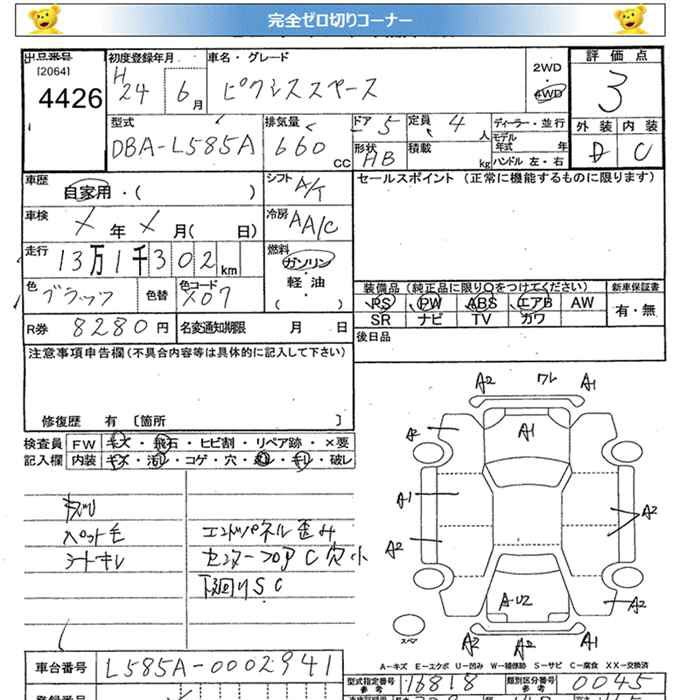 完全ゼロ切りコーナー
出品番号
[2064]
4426
初度登録年月
H24 6月
車名・グレード
ピクシススペース
2WD・4WD
評価点
3
型式
DBA-L585A
排気量
660 CC
ドア 5
定員 4 人
ディーラー・並行
形状 AB
積載 kg
モデル年式 年
ハンドル 左・右
外装 D
内装 C
車歴
自家用・( )
シフト A/T
車検
年 月( 日)
冷房 AA/C
走行
13万1千302km
燃料
ガソリン・軽油
( )
色 ブラック
色替
色コード X07
R券 8280円
名変通知期限 月 日
セールスポイント (正常に機能するものに限ります)
装備品 (純正品に限り○をつけてください)
PS PW ABS エアB AW
SR ナビ TV カワ
新車保証書
有・無
後日品
注意事項申告欄(不具合内容等は具体的に記入して下さい)
修復歴 有 〔箇所 〕
検査員記入欄
FW キズ・飛石・ヒビ割・リペア跡・×要
内装 キズ・汚レ・コゲ・穴・・キレ・破レ
ペット毛
シートキレ
エンドパネル歪み
センターフロアC穴小
下廻りSC
A2 ワレ A1
A2
A1
A1
A2
A2
A2
A-U2
A2 A2 A1
スペア
A-キズ E-エクボ U-凹み W-補修跡 S-サビ C-腐食 XX-交換済
車台番号 L585A-0002941
型式指定番号 参考 16818
類別区分番号 参考 0045